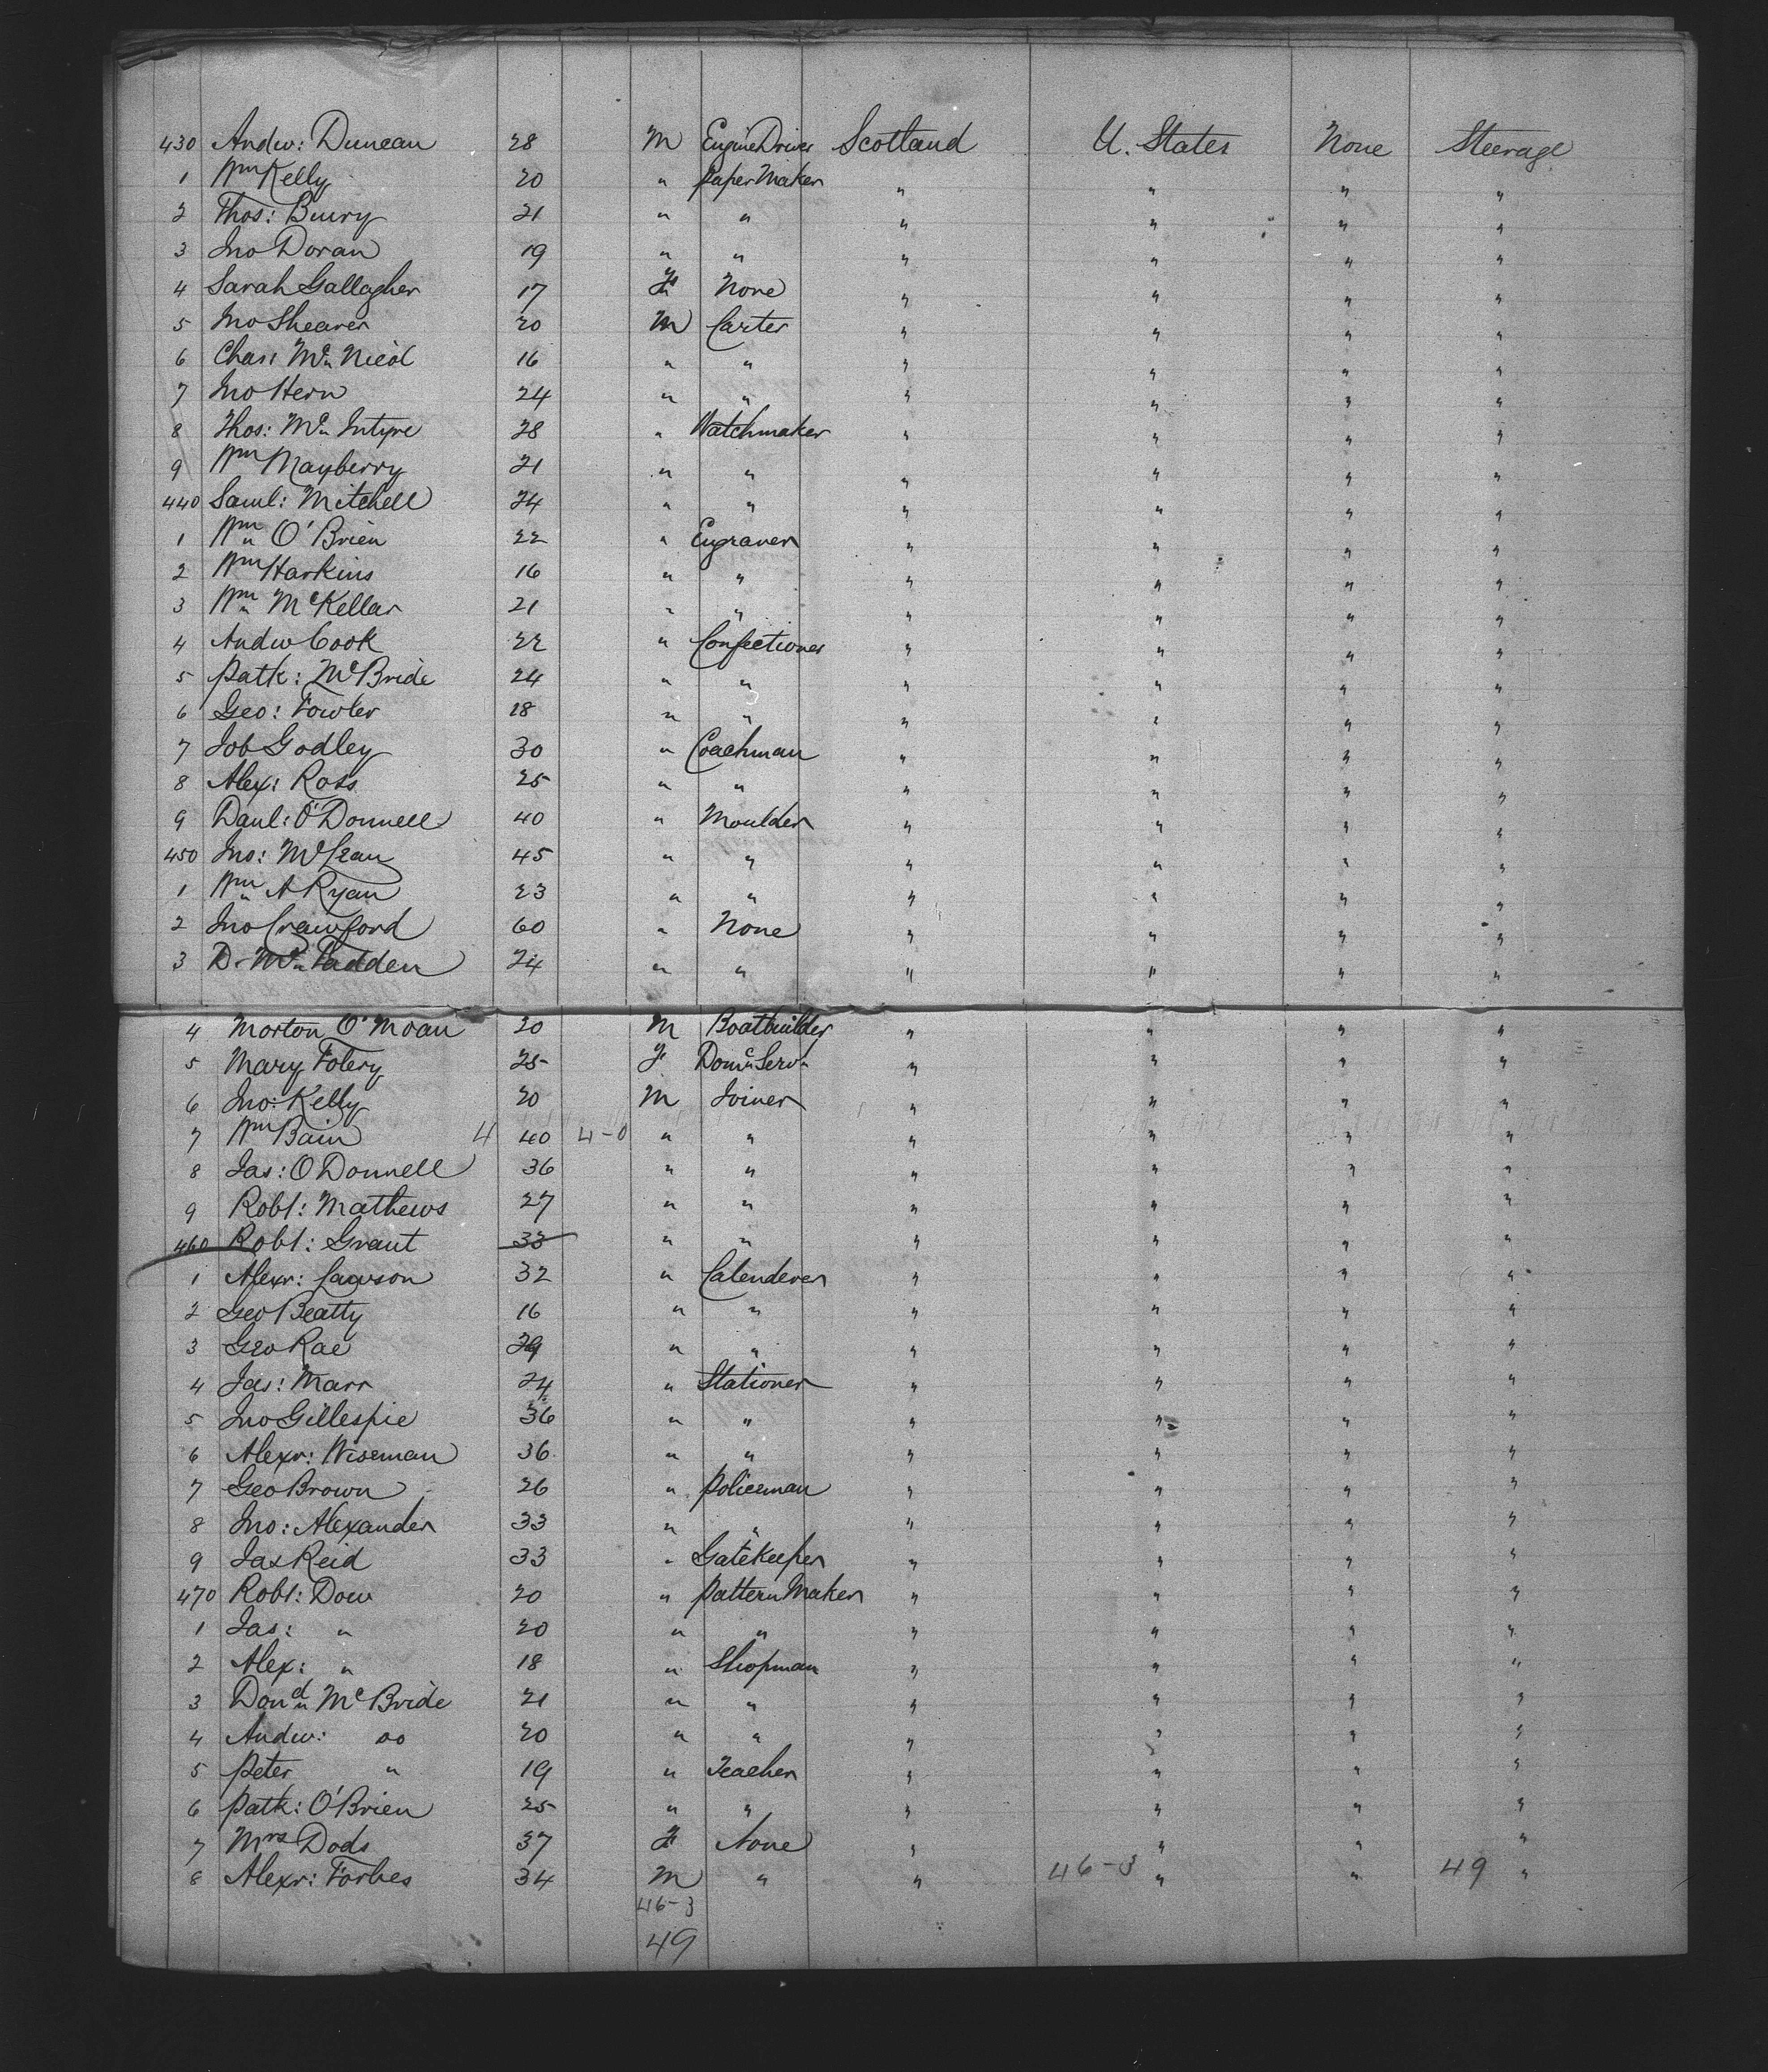 430 Andw: Duncan 28 M Engine Driver Scotland U. States None Steerage
1 Wm Kelly 20 " Paper Maker " " " "
2 Thos: 21 " " " " " "
3 Jno Doran 19 " " " " " "
4 Sarah Gallagher 17 F None " " " "
5 Jno Shearer 20 M Carter " " " "
6 Chas: Mc Nicol 16 " " " " " "
7 Jno Hern 24 " " " " " "
8 Thos: Mc Intyre 28 " Watchmaker " " " "
9 Wm Mayberry 21 " " " " " "
440 Saml: Mitchell 24 " " " " " "
1 Wm O'Brien 22 " Engraver " " " "
2 Wm Harkins 16 " " " " " "
3 Wm McKellar 21 " " " " " "
4 Andw Cook 22 " Confectioner " " " "
5 Patk: McBride 24 " " " " " "
6 Geo: Fowler 18 " " " " " "
7 Job Godley 30 " Coachman " " " "
8 Alex: Ross 25 " " " " " "
9 Danl: O'Donnell 40 " Moulder " " " "
450 Jno: McLean 45 " " " " " "
1 Wm A Ryan 23 " " " " " "
2 Jno Crawford 60 " None " " " "
3 D. Mc Fadden 24 " " " " " "
4 Morton O'Moan 20 M Boatbuilder " " " "
5 Mary Folery 25 F Domc Servt " " " "
6 Jno: Kelly 20 M Joiner " " " "
7 Wm Bain 4 40 4-0 " " " " " "
8 Jas: O'Donnell 36 " " " " " "
9 Robt: Mathews 27 " " " " " "
460 Robt: Grant 33 " " " " " "
1 Alexr: Lawson 32 " Calenderer " " " "
2 Geo Beatty 16 " " " " " "
3 Geo Rae 29 " " " " " "
4 Jas: Marr 24 " Stationer " " " "
5 Jno Gillespie 36 " " " " " "
6 Alexr: Wiseman 36 " " " " " "
7 Geo Brown 26 " Policeman " " " "
8 Jno: Alexander 33 " " " " " "
9 Jas Reid 33 " Gatekeeper " " " "
470 Robt: Dow 20 " Pattern Maker " " " "
1 Jas: " 20 " " " " " "
2 Alex: " 18 " Shopman " " " "
3 Dond McBride 21 " " " " " "
4 Andw: do 20 " " " " " "
5 Peter " 19 " Teacher " " " "
6 Patk: O'Brien 25 " " " " " "
7 Mrs Dods 37 F None " " " "
8 Alexr: Forbes 34 M " " 46-3 " " 49 "
46-3
49